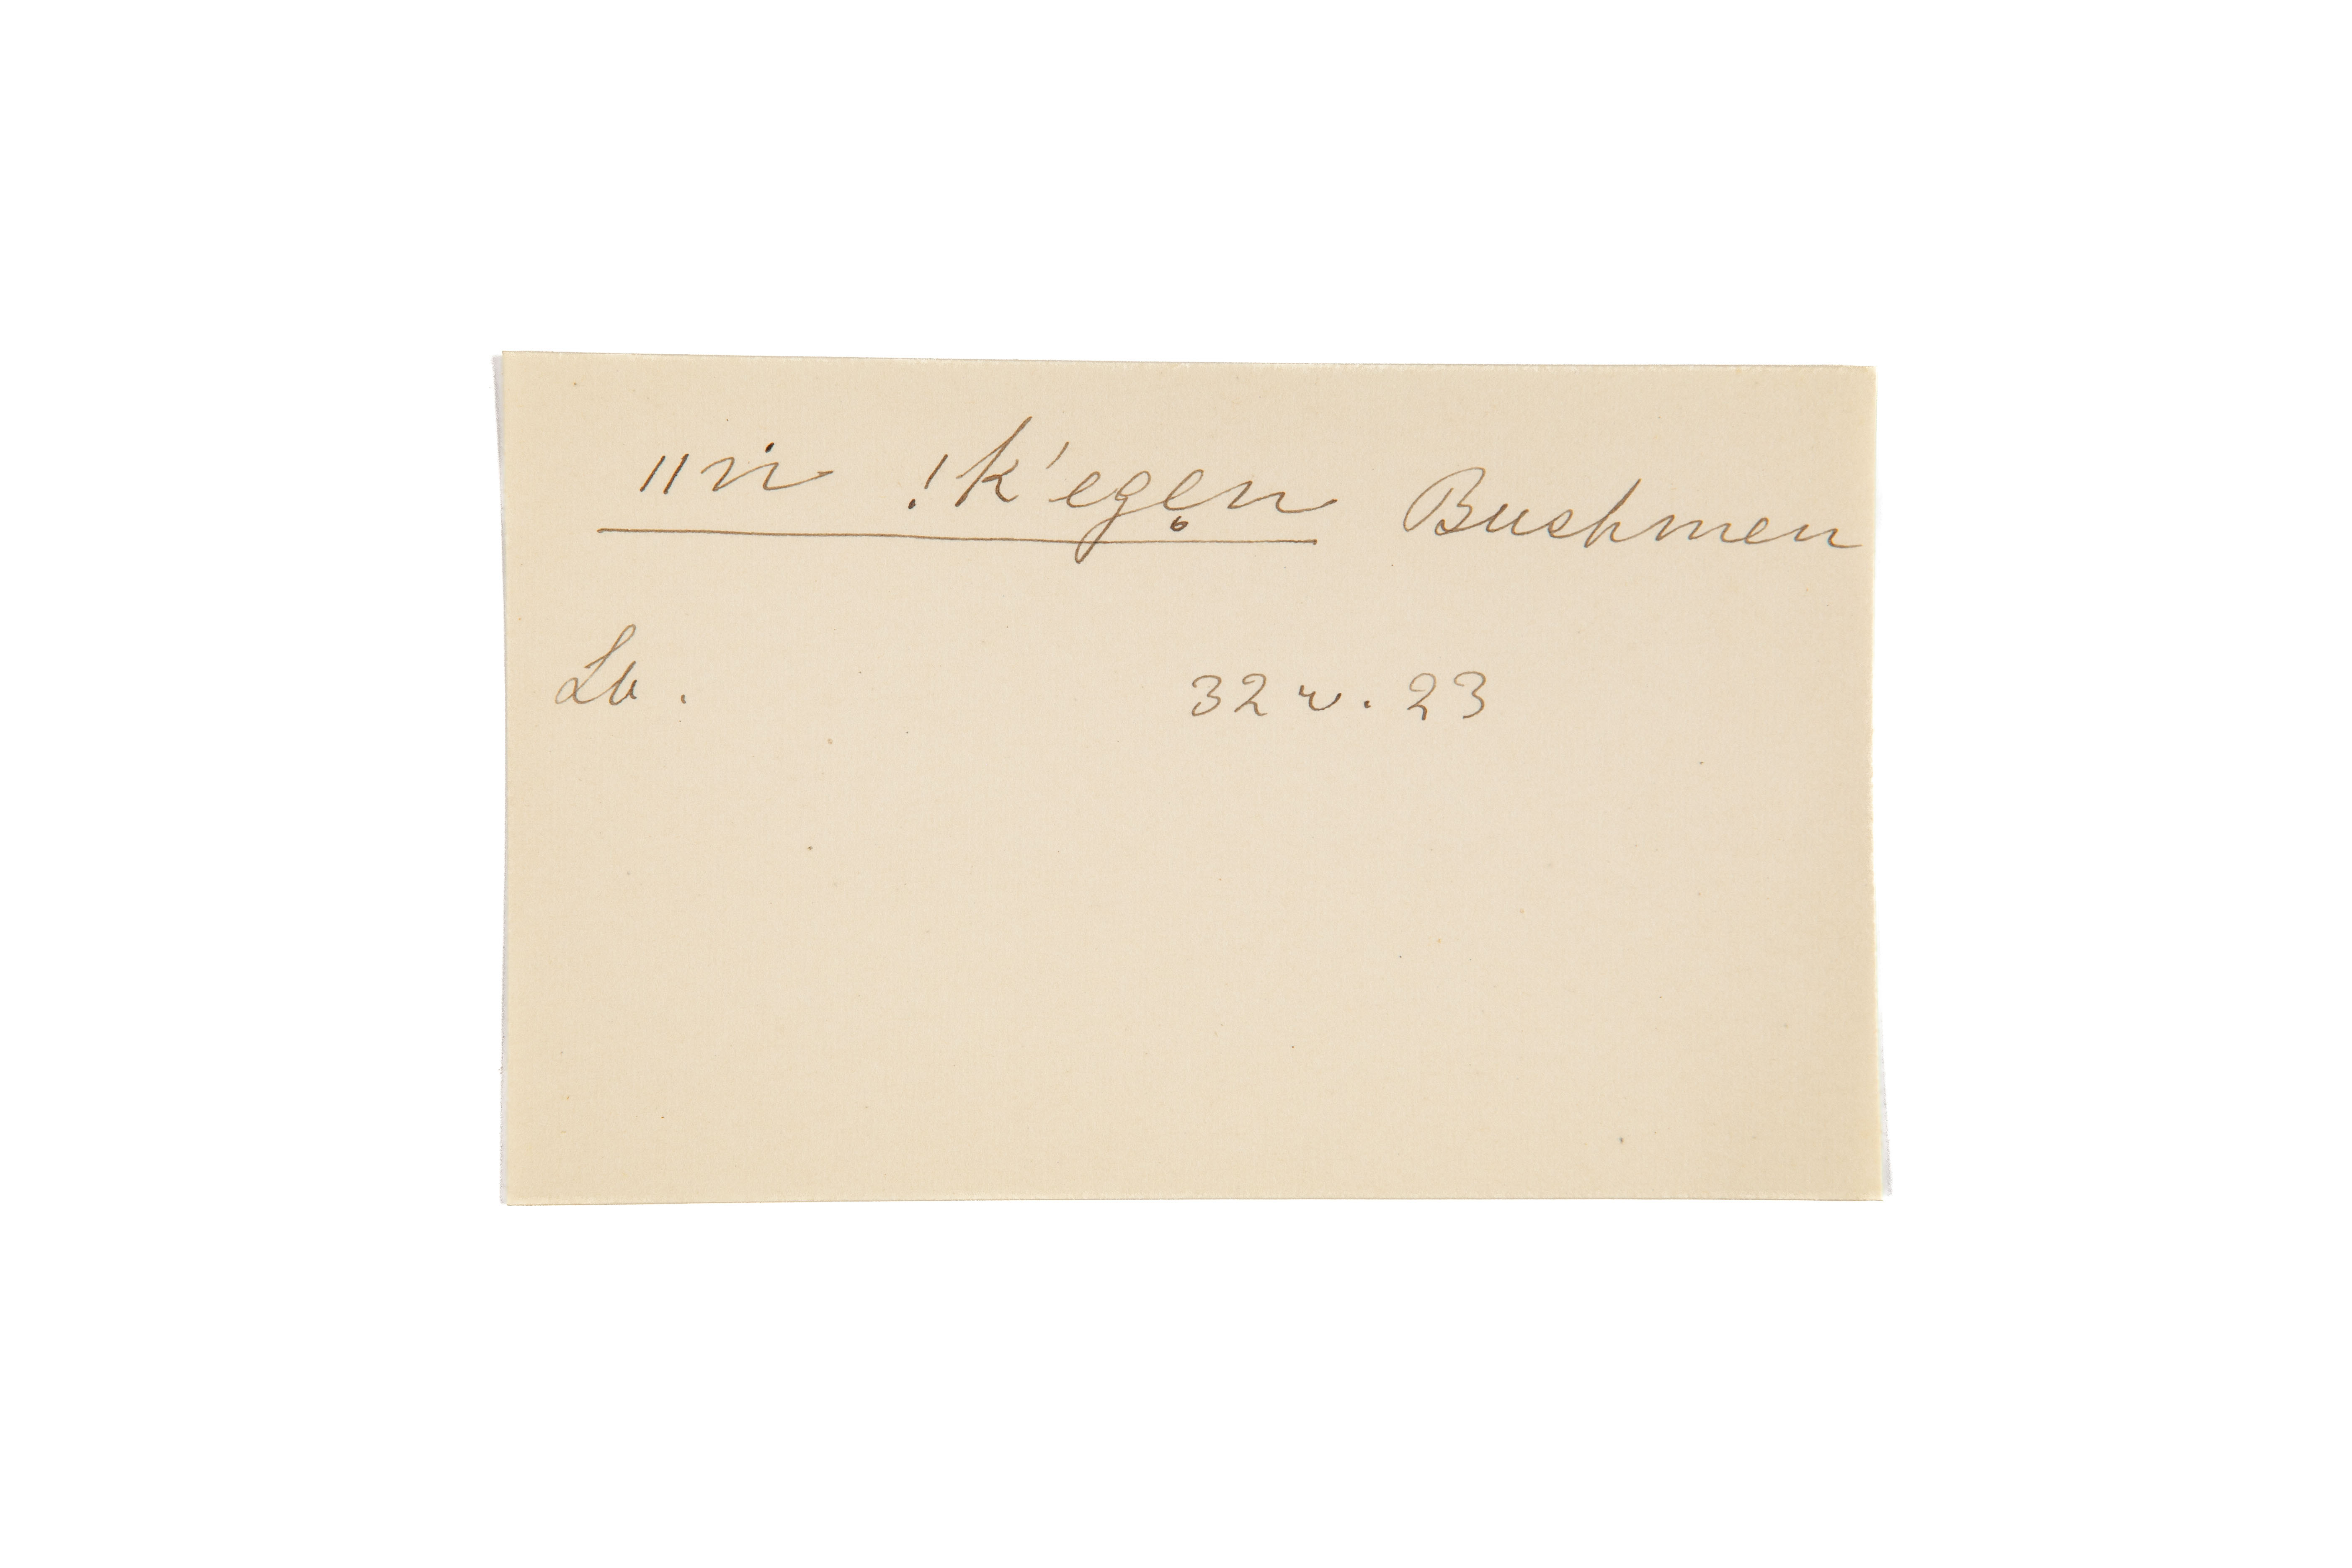 ǁṅ !k'ege̥n Bushmen
Lb. 32 r. 23